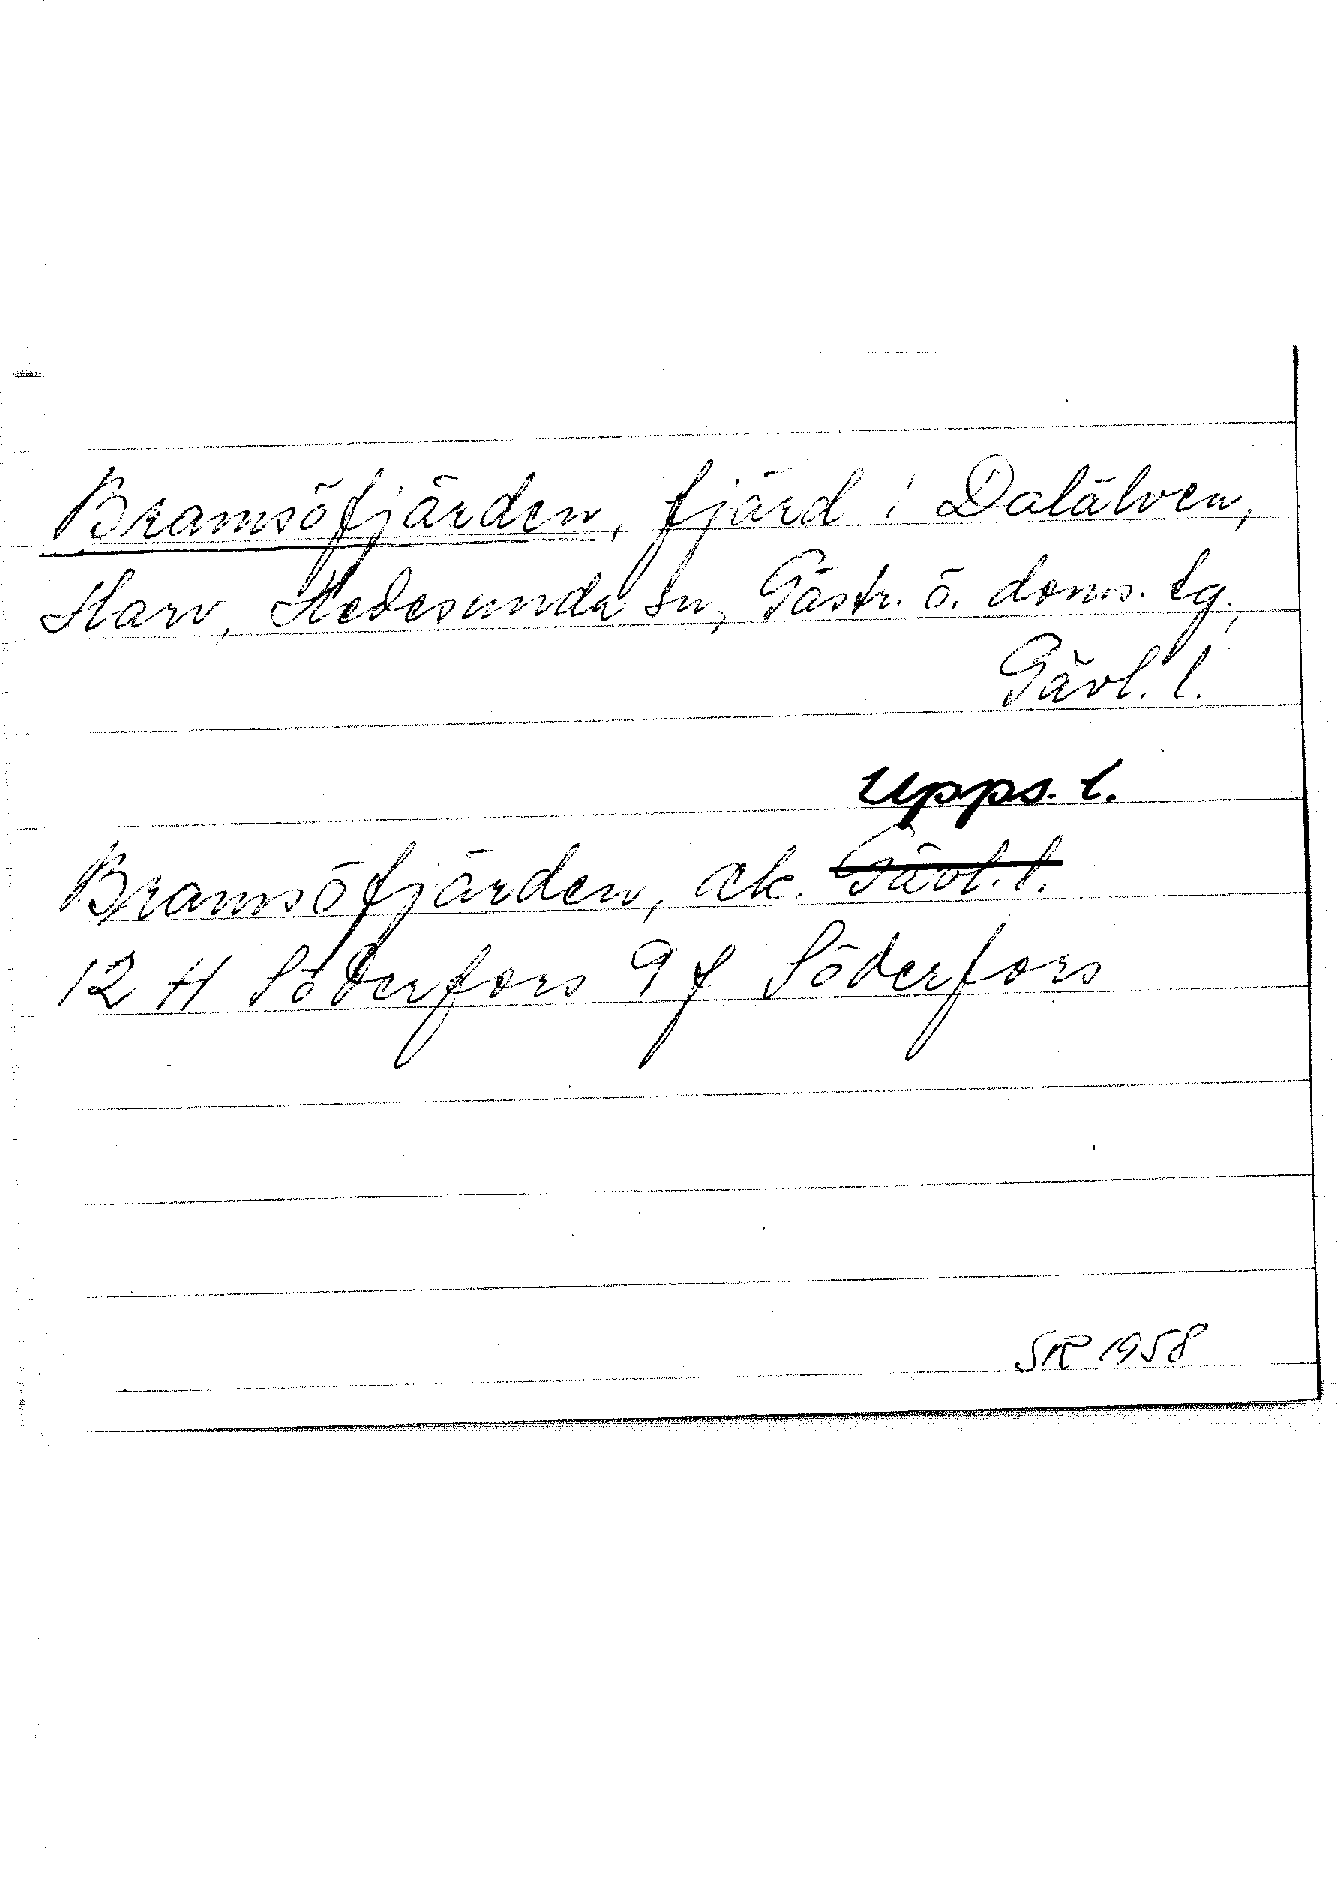 Bramsöfjärden, fjärd i Dalälven,
Harv, Hedesunda sn, Gästr. ö. doms. tg.,
Gävl. l.
Upps. l.
Bramsöfjärden, ek. Gävl. l.
12 H Söderfors 9 f Söderfors
SR 1958